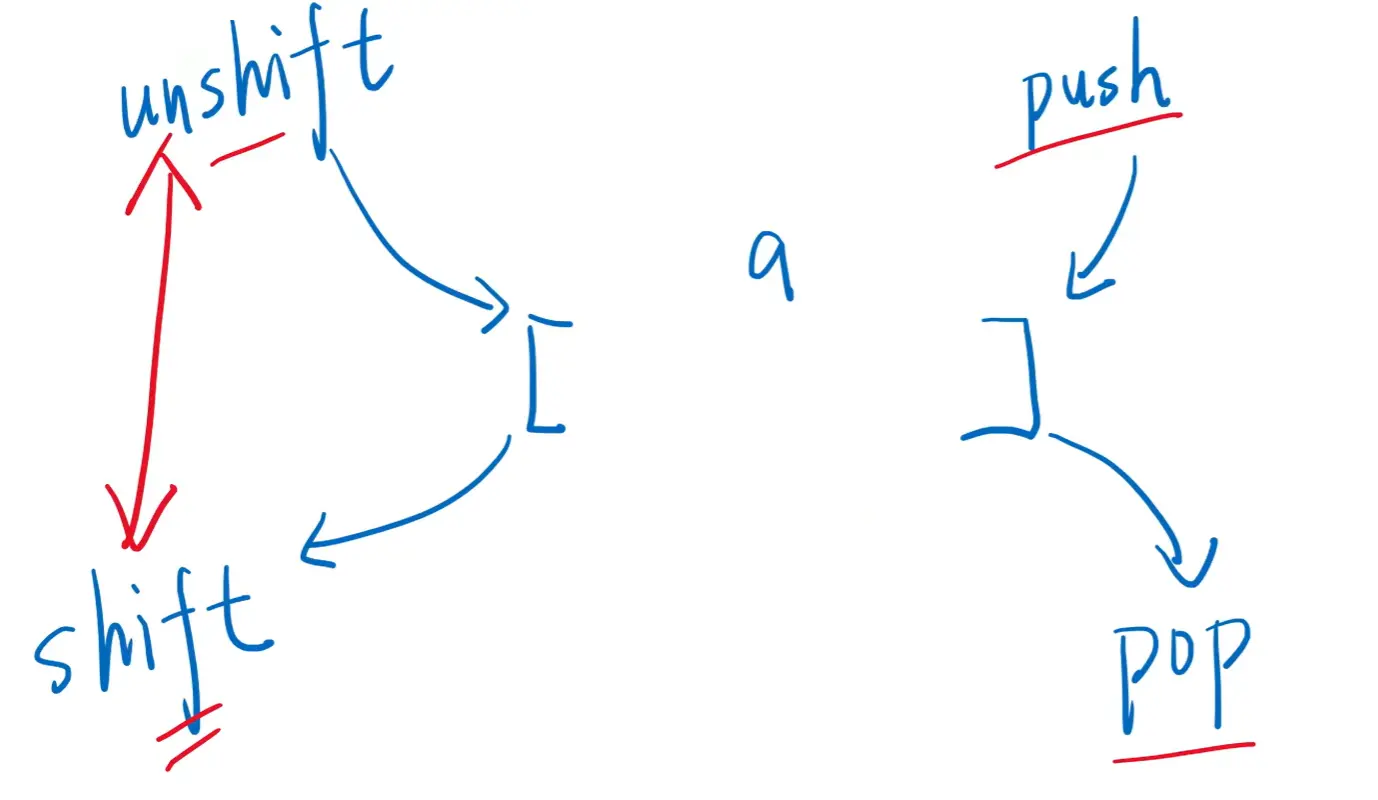 unshift
push
a
[ ]
shift
pop